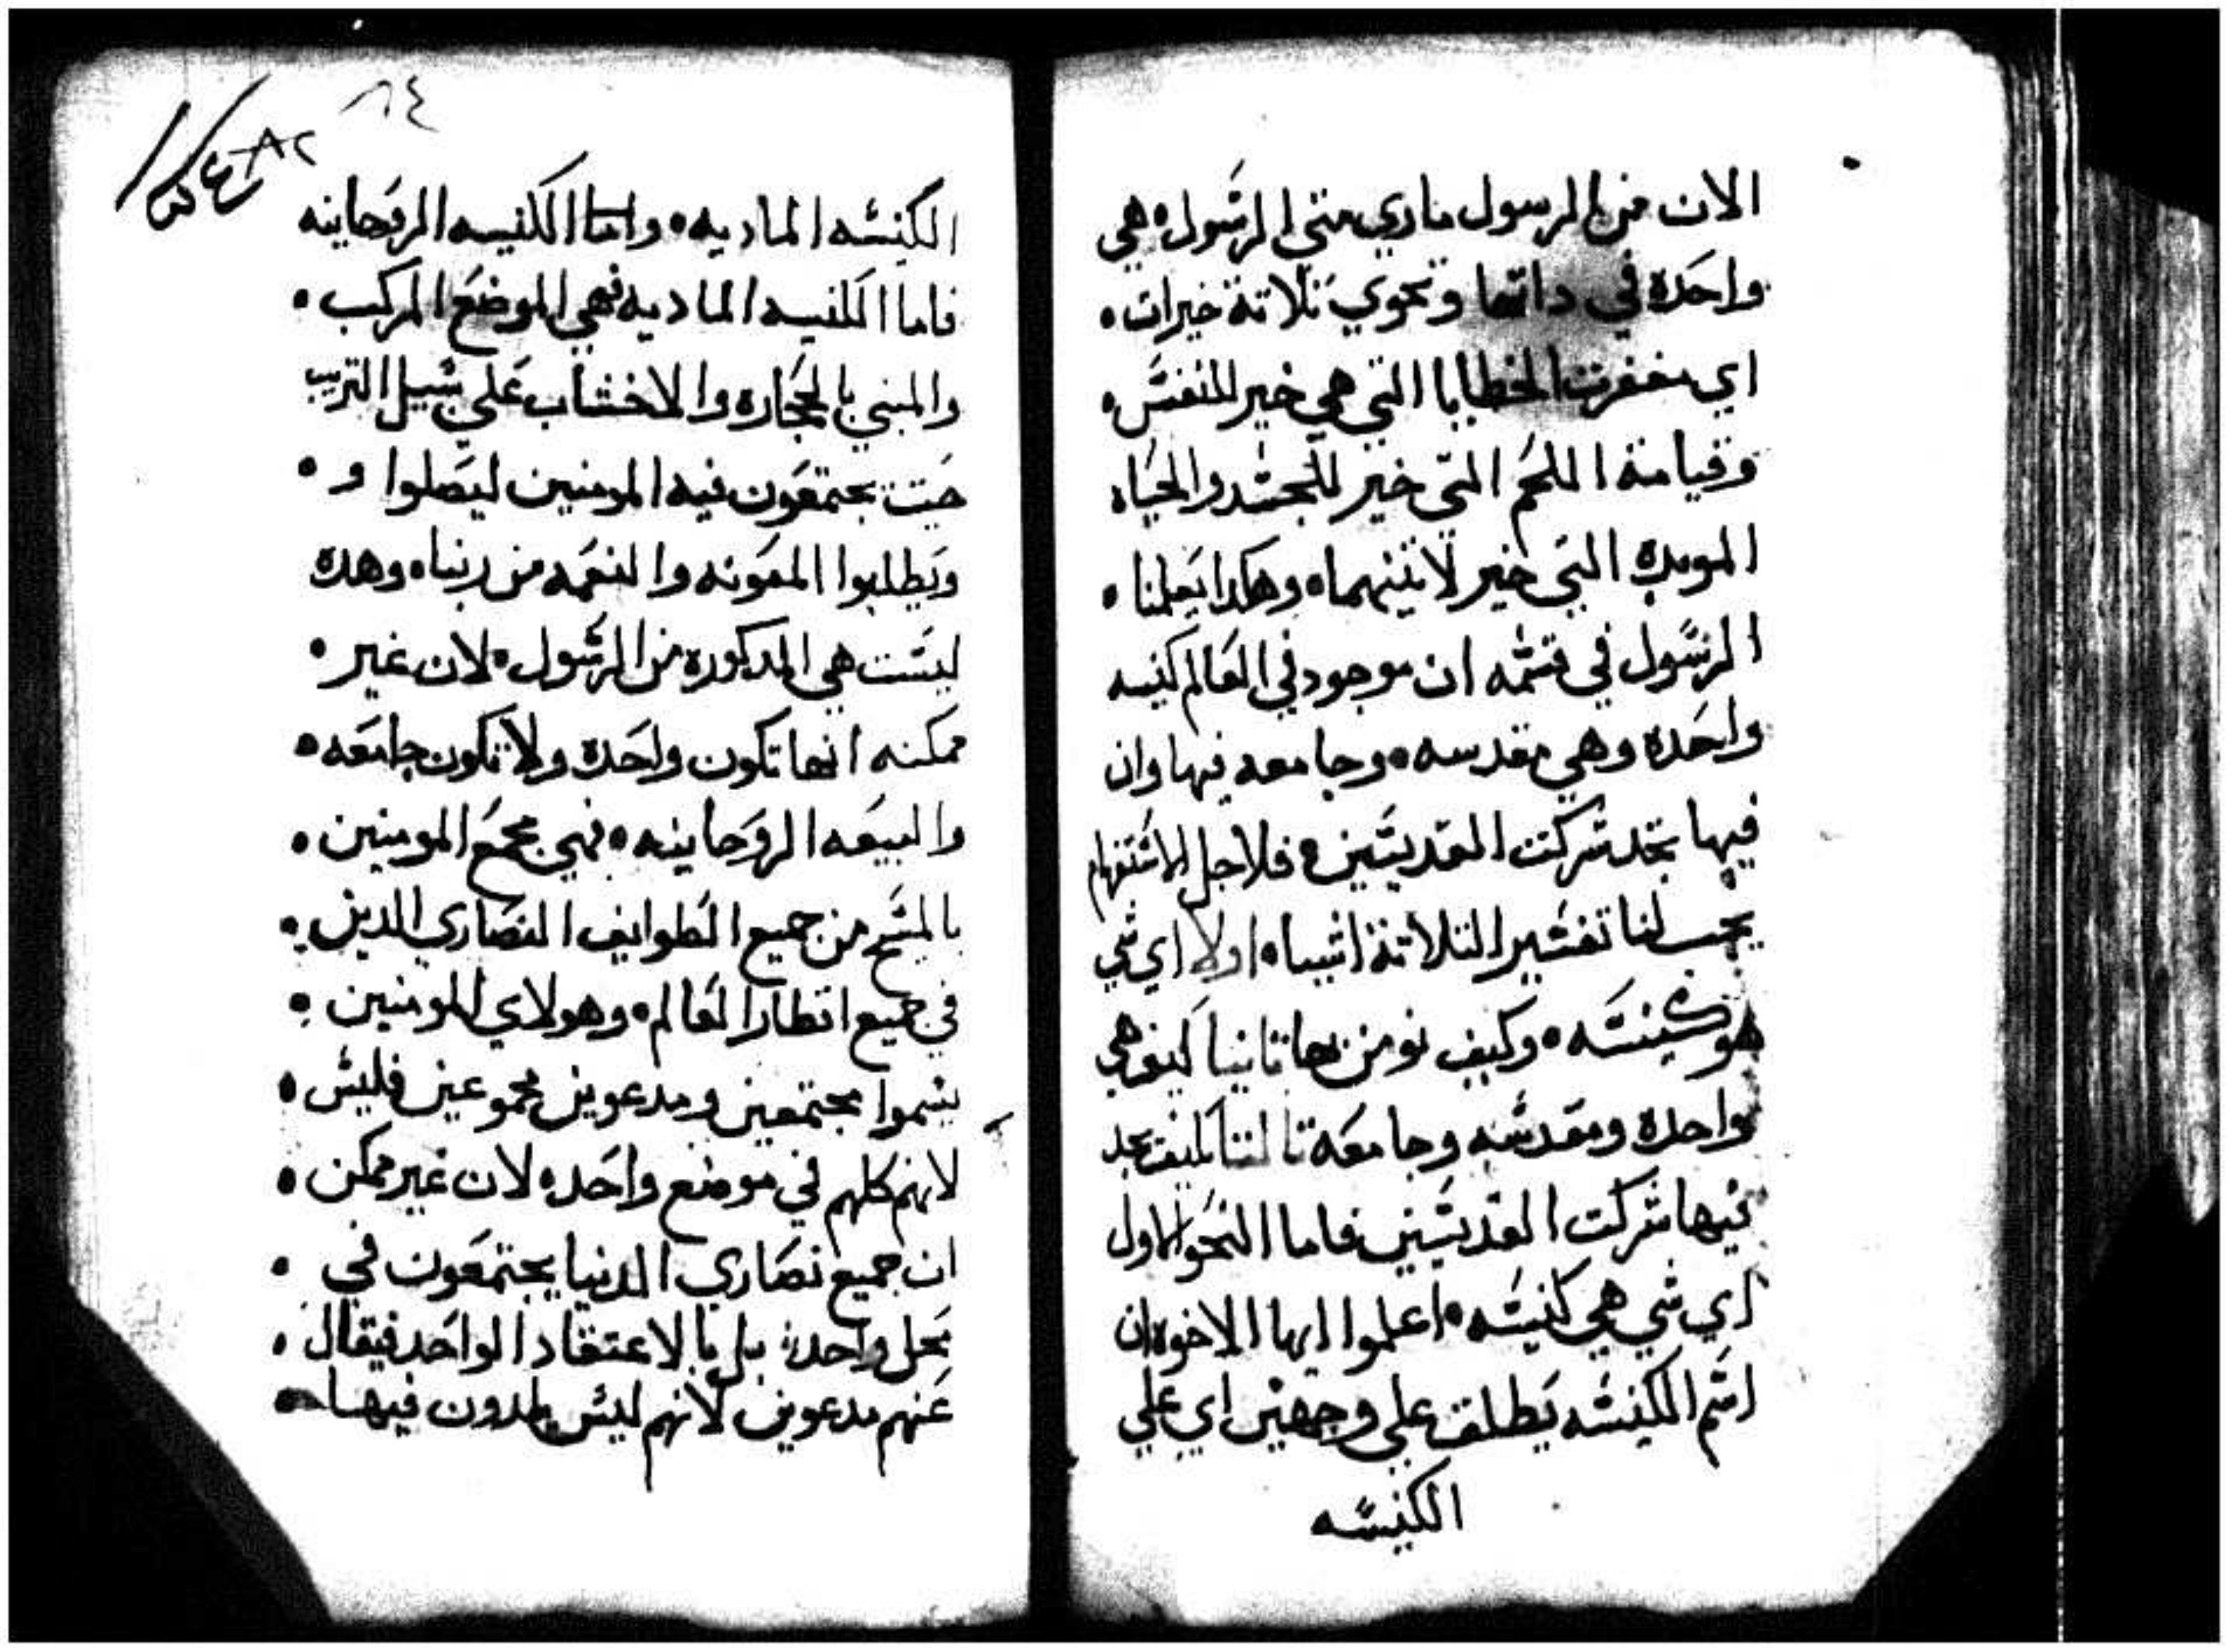 الان من الرسول ماري متي الرسول ه هي
واحده في داتها وتحوي تلاتة خيرات ه
اي مغفرت الخطايا التي هي خير للنفس ه
وقيامة اللحم التي خير للجسد والحياه
الموبده التي خير لاتنيهما ه وهكدا يعلمنا ه
الرسول في قسمه ان موجود في العالم كنيسه
واحده وهي مقدسه ه وجامعه فيها وان
فيها تجد شركت القديسين ه فلاجل الاستفهام
يجب لنا تفسير التلاتة اشيا ه اولا اي شي
هو كنيسه ه وكيف نومن بها تانيا كيف هي
واحده ومقدسه وجامعه تالتا كيف تجد
فيها شركت القديسين فاما النحو الاول
اي شي هي كنيسه ه اعلموا ايها الاخوه ان
اسم الكنيسه يطلق علي وجهين اي علي
الكنيسه
٨٤
٨٢
الكنيسه الماديه ه واما الكنيسه الروحانيه
فاما الكنيسه الماديه فهي الموضع المركب ه
والمبني بالحجاره والاخشاب علي سبيل الترتيب
حيت يجتمعون فيه المومنين ليصلوا و ه
ويطلبوا المعونه والنعمه من ربنا ه وهده
ليست هي المدكوره من الرسول ه لان غير ه
ممكنه انها تكون واحده ولا تكون جامعه ه
والبيعه الروحانيه ه فهي مجمع المومنين ه
بالمسيح من جميع الطوايف النصاري الدين ه
في جميع اقطار العالم ه وهولاي المومنين ه
يسموا مجتمعين ومدعوين مجموعين فليس ه
لانهم كلهم في موضع واحده لان غير ممكن ه
ان جميع نصاري الدنيا يجتمعون في ه
محل واحد ه بل بالاعتقاد الواحد فيقال ه
عنهم مدعوين لانهم ليس يلدون فيها ه